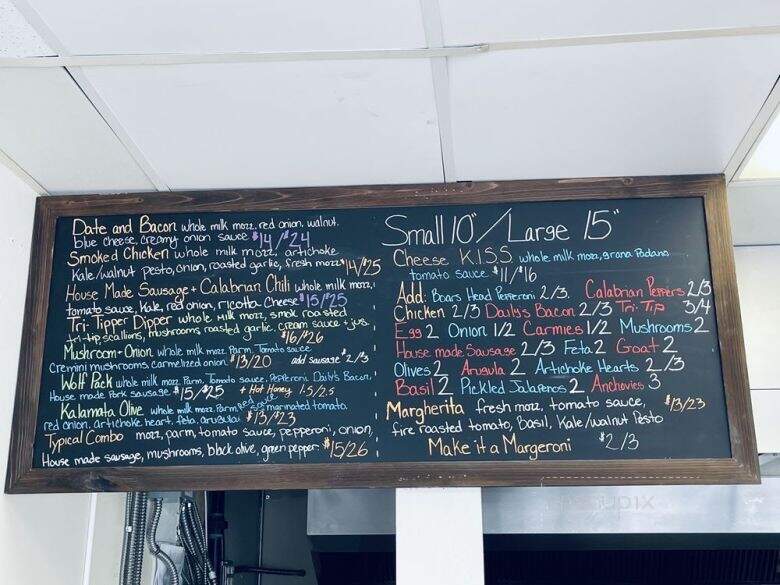 Date and Bacon whole milk mozz, red onion, walnut,
blue cheese, creamy onion sauce $14/$24
Smoked Chicken whole milk mozz, artichoke
Kale/walnut pesto, onion, roasted garlic, fresh mozz $14/$25
House Made Sausage + Calabrian Chili whole milk mozz,
tomato sauce, Kale, red onion, ricotta cheese $15/$25
Tri-Tipper Dipper whole milk mozz, smok roasted
tri-tip, scallions, mushrooms roasted garlic. cream sauce + jus.
$16/$26
Mushroom + Onion whole milk mozz. Parm. Tomato sauce
Cremini mushrooms, carmelized onion $13/20 add sausage $2/3
Wolf Pack whole milk mozz. Parm. Tomato sauce, Pepperoni. Daily's Bacon,
House made Pork sausage $15/$25 + Hot Honey 1.5/2.5
Kalamata Olive whole milk mozz. Parm, marinated tomato
red onion, artichoke heart, feta, arugula $13/$23
Typical Combo mozz, parm, tomato sauce, pepperoni, onion,
House made sausage, mushrooms, black olive, green pepper $15/26
Small 10"/Large 15"
Cheese K.I.S.S whole milk mozz, grana Padano
tomato sauce $11/$16
Add: Boars Head Pepperoni 2/3. Calabrian Peppers 2/3
Chicken 2/3 Dailys Bacon 2/3 Tri-Tip 3/4
Egg 2 Onion 1/2 Carmies 1/2 Mushrooms 2
House made Sausage 2/3 Feta 2 Goat 2
Olives 2 Arugula 2 Artichoke Hearts 2/3
Basil 2 Pickled Jalapenos 2 Anchovies 3
Margherita fresh mozz, tomato sauce, $13/23
fire roasted tomato, Basil, Kale/walnut Pesto
Make it a Margeroni $2/3